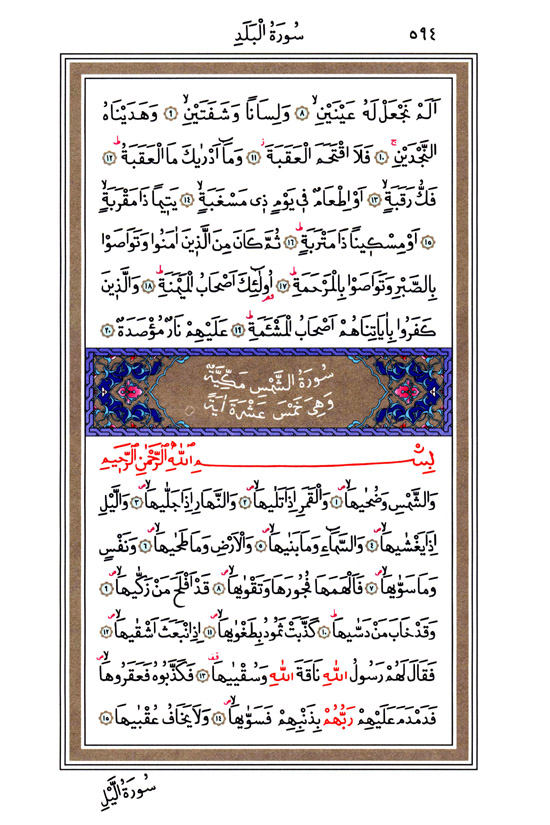 سُورَةُ الْبَلَدِ ٥٩٤
اَلَمْ نَجْعَلْ لَهُ عَيْنَيْنِۙ ﴿٨﴾ وَلِسَاناً وَشَفَتَيْنِۙ ﴿٩﴾ وَهَدَيْنَاهُ
النَّجْدَيْنِۚ ﴿١٠﴾ فَلَا اقْتَحَمَ الْعَقَبَةَۘ ﴿١١﴾ وَمَٓا اَدْرٰيكَ مَا الْعَقَبَةُۜ ﴿١٢﴾
فَكُّ رَقَبَةٍۙ ﴿١٣﴾ اَوْ اِطْعَامٌ ف۪ي يَوْمٍ ذ۪ي مَسْغَبَةٍۙ ﴿١٤﴾ يَت۪يماً ذَا مَقْرَبَةٍۙ
﴿١٥﴾ اَوْ مِسْك۪يناً ذَا مَتْرَبَةٍۜ ﴿١٦﴾ ثُمَّ كَانَ مِنَ الَّذ۪ينَ اٰمَنُوا وَتَوَاصَوْا
بِالصَّبْرِ وَتَوَاصَوْا بِالْمَرْحَمَةِۜ ﴿١٧﴾ اُو۬لٰٓئِكَ اَصْحَابُ الْمَيْمَنَةِۜ ﴿١٨﴾ وَالَّذ۪ينَ
كَفَرُوا بِاٰيَاتِنَا هُمْ اَصْحَابُ الْمَشْـَٔمَةِۜ ﴿١٩﴾ عَلَيْهِمْ نَارٌ مُؤْصَدَةٌ ﴿٢٠﴾
سُورَةُ الشَّمْسِ مَكِّيَّةٌ
وَهِيَ خَمْسَ عَشْرَةَ اٰيَةً
بِسْمِ اللّٰهِ الرَّحْمٰنِ الرَّح۪يمِ
وَالشَّمْسِ وَضُحٰيهَاۙۖ ﴿١﴾ وَالْقَمَرِ اِذَا تَلٰيهَاۙۖ ﴿٢﴾ وَالنَّهَارِ اِذَا جَلّٰيهَاۙۖ ﴿٣﴾ وَالَّيْلِ
اِذَا يَغْشٰيهَاۙۖ ﴿٤﴾ وَالسَّمَٓاءِ وَمَا بَنٰيهَاۙۖ ﴿٥﴾ وَالْاَرْضِ وَمَا طَحٰيهَاۙۖ ﴿٦﴾ وَنَفْسٍ
وَمَا سَوّٰيهَاۙۖ ﴿٧﴾ فَاَلْهَمَهَا فُجُورَهَا وَتَقْوٰيهَاۙۖ ﴿٨﴾ قَدْ اَفْلَحَ مَنْ زَكّٰيهَاۙۖ ﴿٩﴾
وَقَدْ خَابَ مَنْ دَسّٰيهَاۜ ﴿١٠﴾ كَذَّبَتْ ثَمُودُ بِطَغْوٰيهَاۙۖ ﴿١١﴾ اِذِ انْبَعَثَ اَشْقٰيهَاۙۖ ﴿١٢﴾
فَقَالَ لَهُمْ رَسُولُ اللّٰهِ نَاقَةَ اللّٰهِ وَسُقْيٰيهَا ﴿١٣﴾ فَكَذَّبُوهُ فَعَقَرُوهَاۙۖ
فَدَمْدَمَ عَلَيْهِمْ رَبُّهُمْ بِذَنْبِهِمْ فَسَوّٰيهَاۙۖ ﴿١٤﴾ وَلَا يَخَافُ عُقْبٰيهَا ﴿١٥﴾
سُورَةُ الَّيْلِ